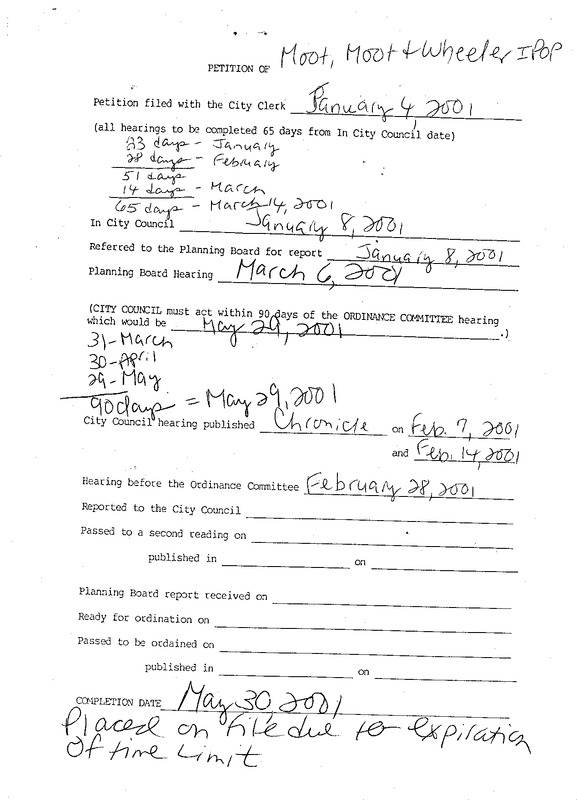 PETITION OF Moot, Moot & Wheeler IPOP
Petition filed with the City Clerk January 4, 2001
(all hearings to be completed 65 days from In City Council date)
23 days - January
28 days - February
51 days
14 days - March
65 days - March 14, 2001
In City Council January 8, 2001
Referred to the Planning Board for report January 8, 2001
Planning Board Hearing March 6, 2001
(CITY COUNCIL must act within 90 days of the ORDINANCE COMMITTEE hearing
which would be May 29, 2001 .)
31-March
30-April
29-May
90 days = May 29, 2001
City Council hearing published Chronicle on Feb. 7, 2001
and Feb. 14, 2001
Hearing before the Ordinance Committee February 28, 2001
Reported to the City Council
Passed to a second reading on
published in on
Planning Board report received on
Ready for ordination on
Passed to be ordained on
published in on
COMPLETION DATE May 30, 2001
Placed on file due to expiration
of time limit